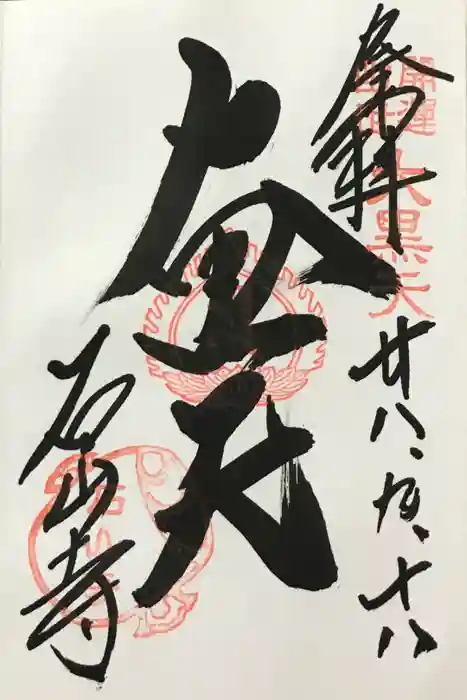 奉拝
開運
出世
大黒天
廿八、五、十八
大黒天
石山寺